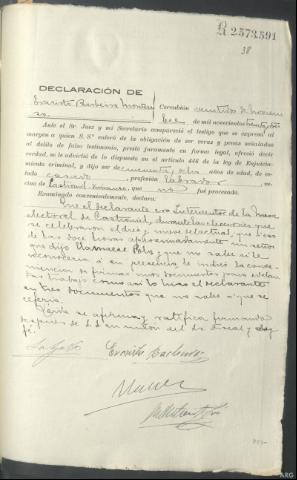 R 2573,591
38
DECLARACIÓN DE
Evaristo Barbeira
Corcubión veintidós de
de mil novecientos treinta y seis
Ante el Sr Juez y mi Secretaría compareció el testigo que se expresa al
margen a quien S. Sª enteró de la obligación de ser veraz y penas señaladas
al delito de falso testimonio, prestó juramento en forma legal, ofreció decir
verdad, se le advirtió de lo dispuesto en el artículo 446 de la ley de Enjuicia-
miento criminal, y dijo ser de cincuenta y dos años de edad, de es-
tado casado, profesión labrador
cino de que no fué procesado.
Examinado convenientemente, declara:
Que el declarante era Interventor de la mesa
electoral de durante las elecciones que
se celebraron el diez y nueve del actual, que a eso
de las doce horas aproximadamente un señor
que dijo llamarse Polo y que no sabe si le
reconocería a su presencia
firmas unos documentos
como así lo hizo el declarante
en tres documentos que no sabe a que se
refería.
Leída se afirma y ratifica firmando
después de S. S. en unión del Sr. Fiscal y doy
fé.
Evaristo Barbeira
ARG